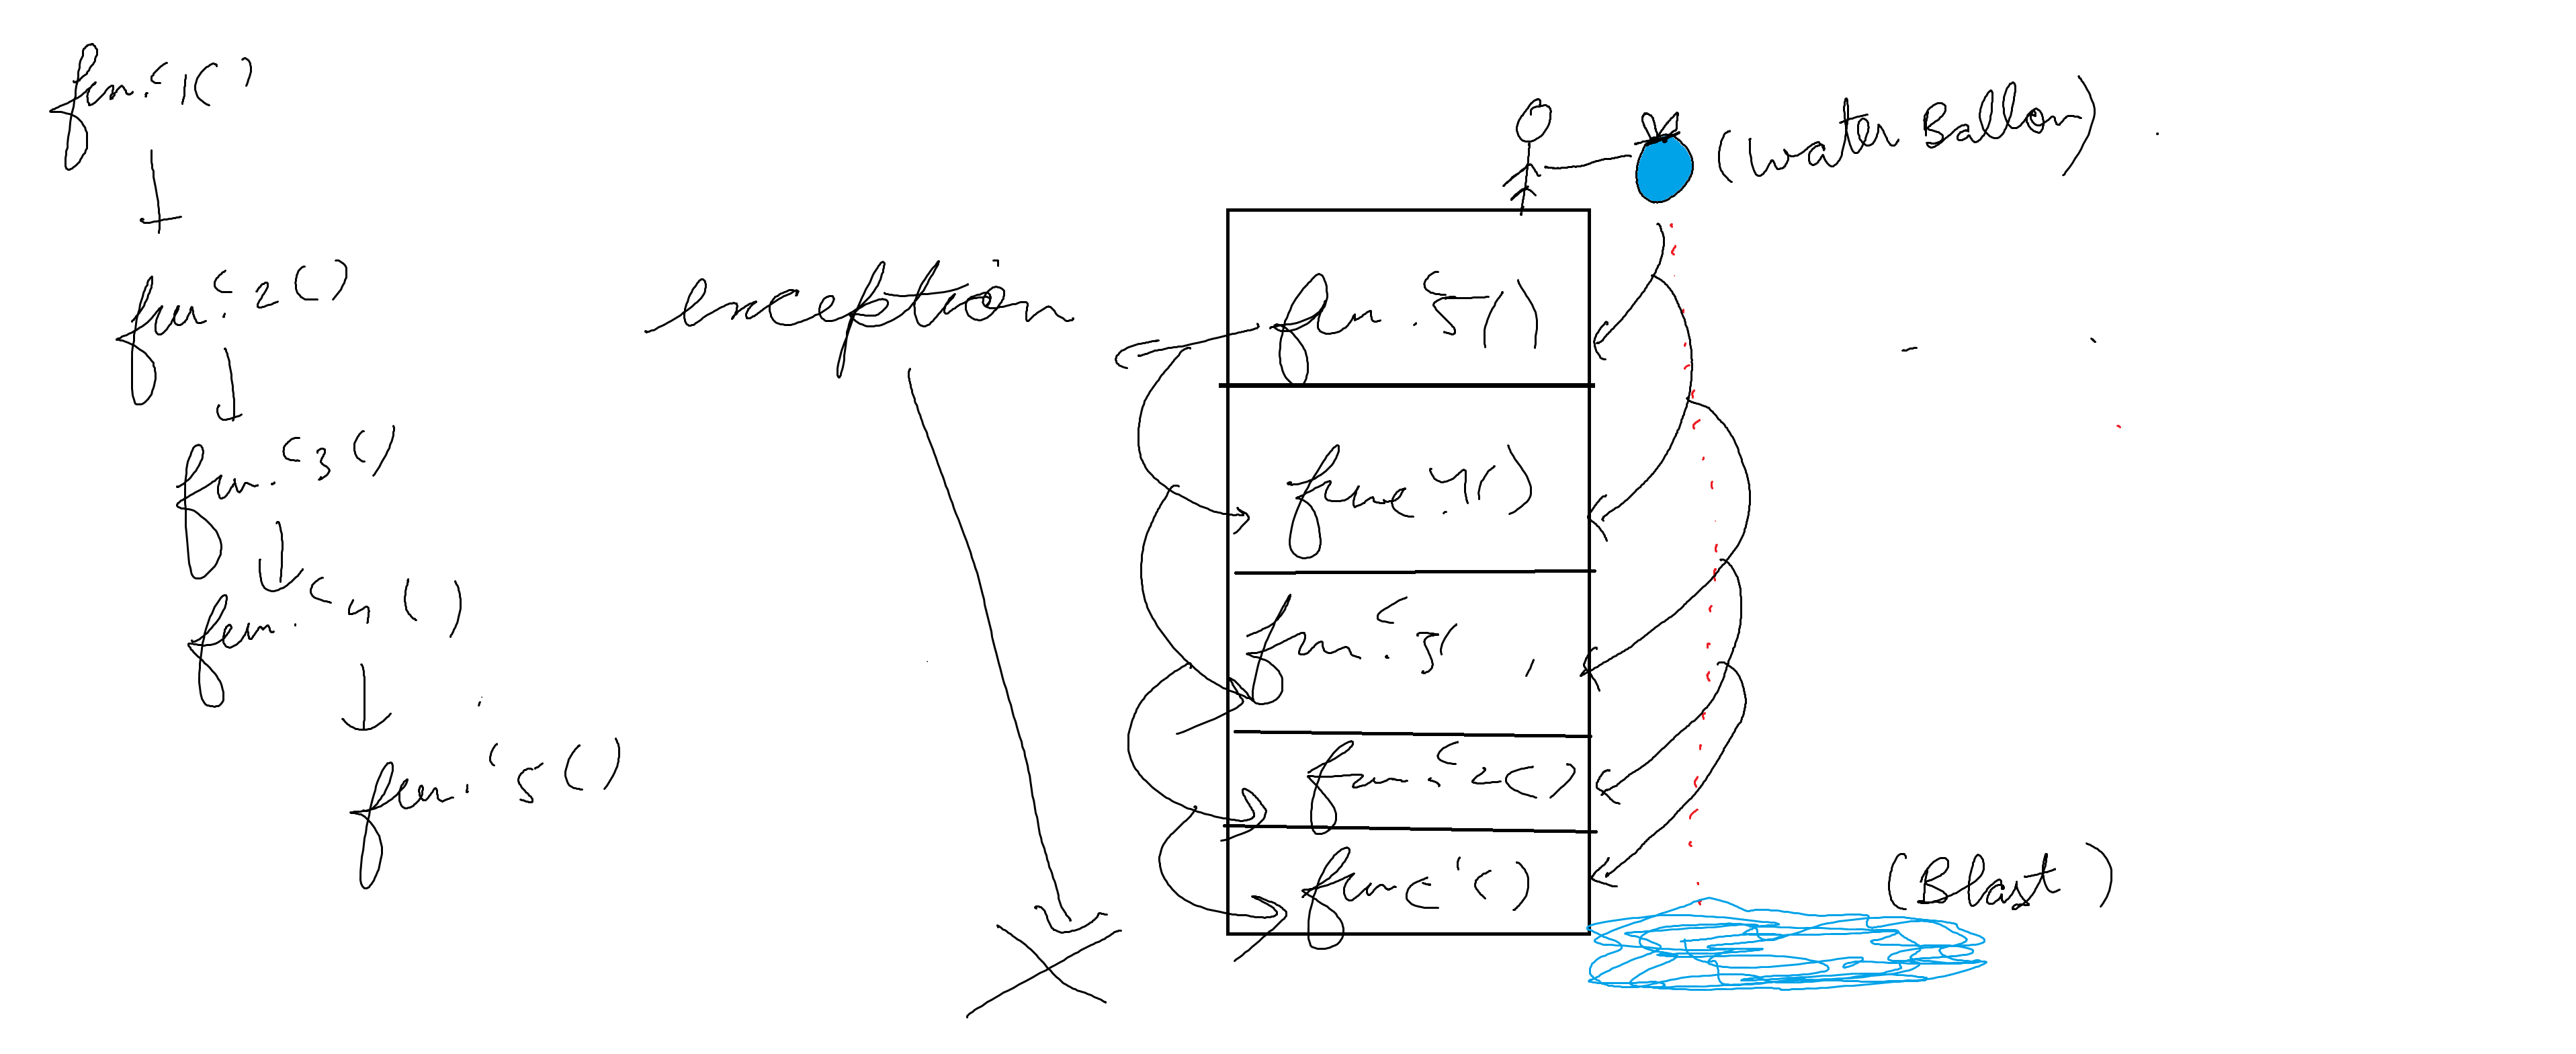 func 1()
func 2()
func 3()
func 4()
func 5()
exception
(Water Ballon)
func 5()
func 4()
func 3(
func 2()
func 1()
(Blast)